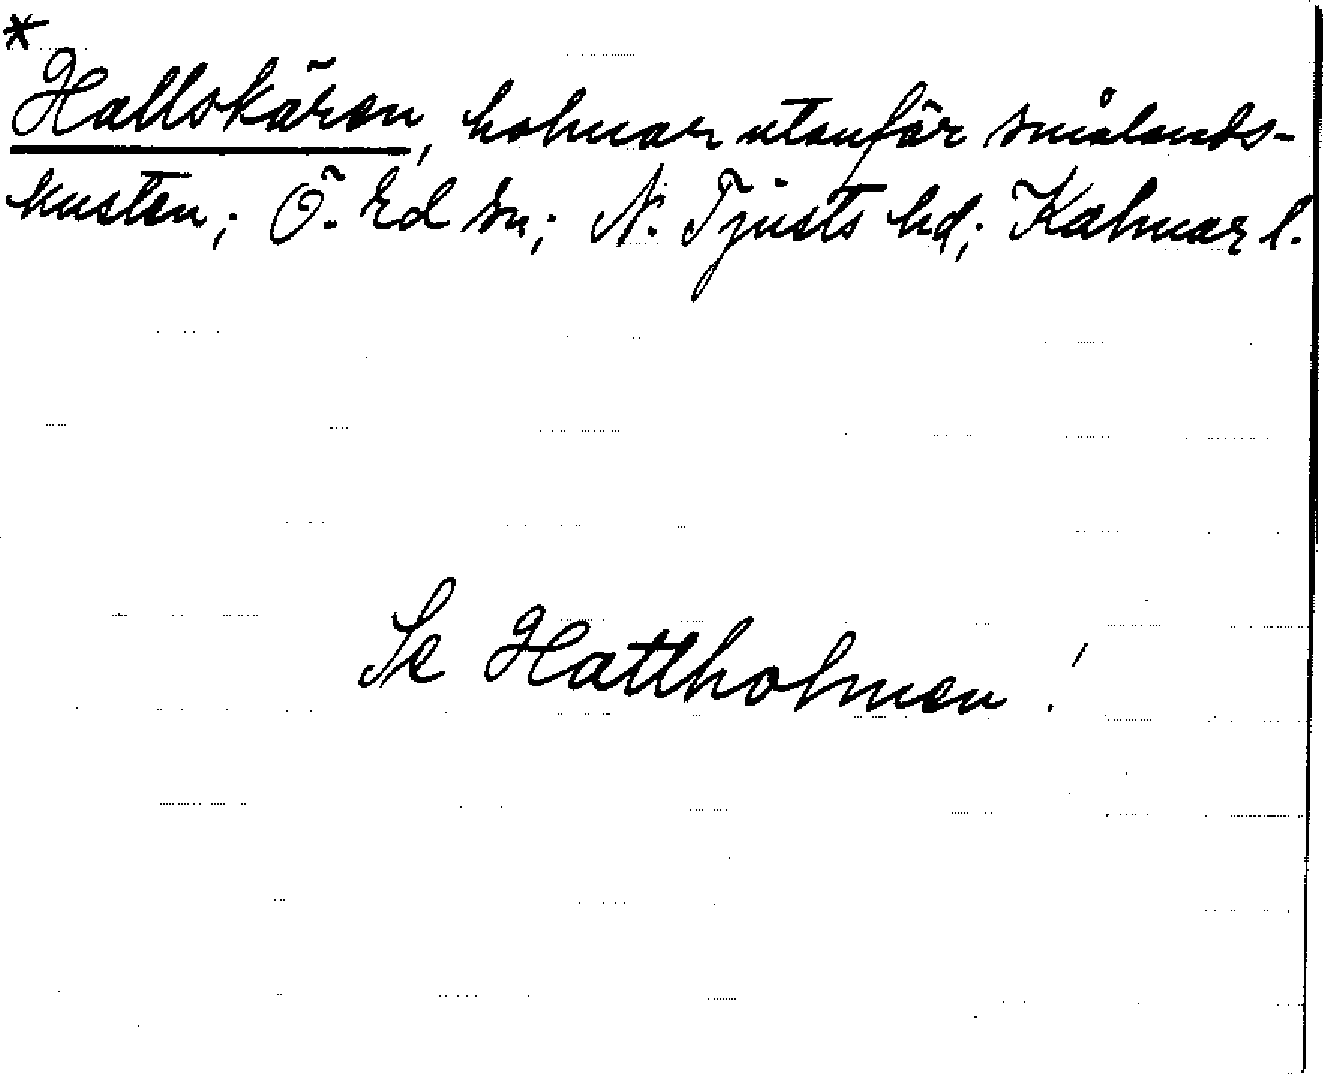 *
Hallskären, holmar utanför smålands-
kusten; Ö. Ed sn; N. Tjusts hd; Kalmar l.
Se Hattholmen!